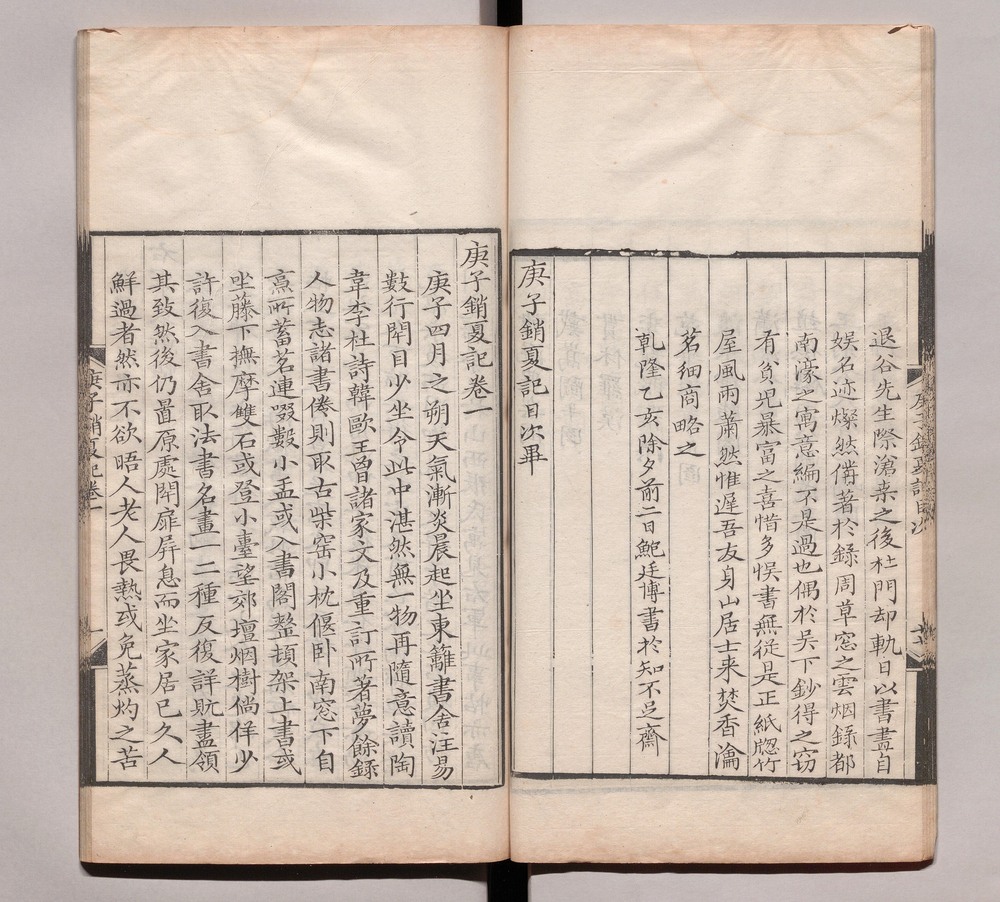 退谷先生際滄桒之後杜門却軌日以書畫自
娱名迹燦然僃著於錄周草窓之雲烟録都
南濠之寓意編不是過也偶於吴下鈔得之窃
有貧児暴富之喜惜多悮書無従是正紙窓竹
屋風雨蕭然惟遲吾友身山居士来焚香瀹
茗細商略之
乹隆乙亥除夕前二日鮑廷博書於知不足齋
庚子銷夏記目次畢
庚子銷夏記目次
庚子銷夏記卷一
庚子四月之朔天氣漸炎晨起坐東籬書舍注易
數行閉目少坐令此中湛然無一物再隨意讀陶
韋李杜詩韓歐王曾諸家文及重訂所著夢餘錄
人物志諸書倦則取古柴窑小枕偃卧南窓下自
烹所蓄茗連啜數小盂或入書閣整頓架上書或
坐藤下撫摩雙石或登小臺望郊壇烟樹倘佯少
許復入書舍取法書名畫一二種反復詳玩盡領
其致然後仍置原處閉扉屏息而坐家居已久人
鮮過者然亦不欲晤人老人畏熱或免蒸灼之苦
庚子銷夏記卷一
一